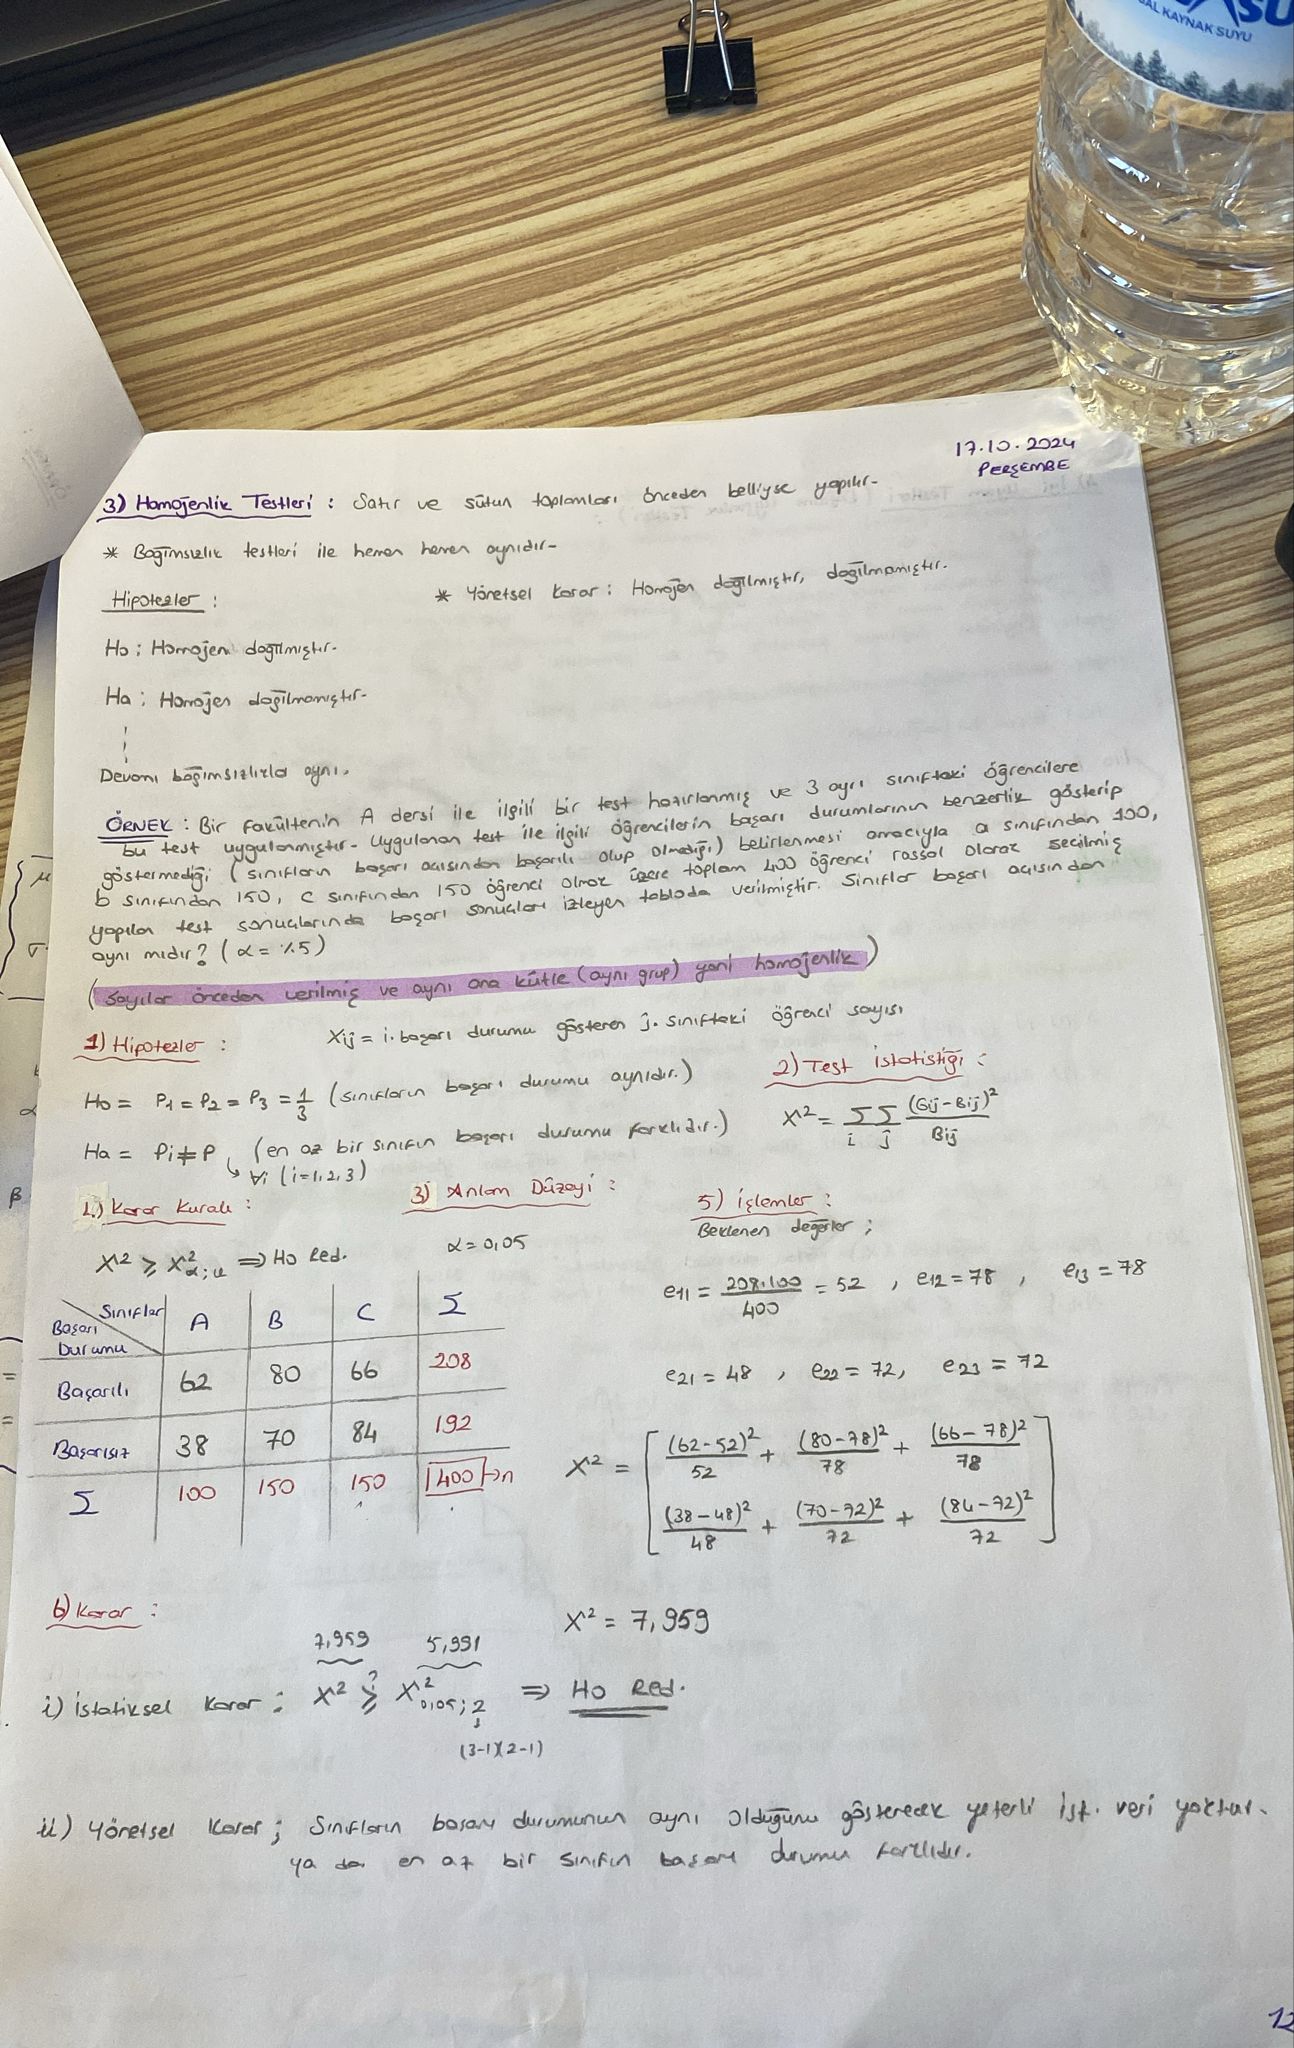 SU
AL KAYNAK SUYU
17.10.2024
PERŞEMBE
3) Homojenlik Testleri : Satır ve sütun toplamları önceden belliyse yapılır.
* Bağımsızlık testleri ile hemen hemen aynıdır.
Hipotezler :
* Yönetsel Karar : Homojen dağılmıştır, dağılmamıştır.
Ho : Homojen dağılmıştır.
Ha : Homojen dağılmamıştır.
Devamı bağımsızlıkla aynı.
ÖRNEK : Bir fakültenin A dersi ile ilgili bir test hazırlanmış ve 3 ayrı sınıftaki öğrencilere
bu test uygulanmıştır. Uygulanan test ile ilgili öğrencilerin başarı durumlarının benzerlik gösterip
göstermediği (sınıfların başarı açısından başarılı olup olmadığı) belirlenmesi amacıyla a sınıfından 100,
b sınıfından 150, c sınıfından 150 öğrenci olmak üzere toplam 400 öğrenci rassal olarak seçilmiş
yapılan test sonuçlarında başarı sonuçları izleyen tabloda verilmiştir. Sınıflar başarı açısından
aynı mıdır? (α = %5)
(Sayılar önceden verilmiş ve aynı ana kütle (aynı grup) yani homojenlik)
1) Hipotezler :
Xij = i. başarı durumu gösteren j. sınıftaki öğrenci sayısı
Ho = P1 = P2 = P3 = 1/3 (sınıfların başarı durumu aynıdır.)
Ha = Pi ≠ P (en az bir sınıfın başarı durumu farklıdır.)
↳ ∀i (i=1,2,3)
2) Test İstatistiği :
X² = Σi Σj (Gij - Bij)² / Bij
4) Karar Kuralı :
X² ≥ X²α;u ⇒ Ho Red.
3) Anlam Düzeyi :
α = 0,05
5) İşlemler :
Beklenen değerler ;
e11 = 208.100 / 400 = 52 , e12 = 78 , e13 = 78
e21 = 48 , e22 = 72, e23 = 72
Sınıflar Başarı Durumu A B C Σ
Başarılı 62 80 66 208
Başarısız 38 70 84 192
Σ 100 150 150 400 → n
X² = [ (62-52)²/52 + (80-78)²/78 + (66-78)²/78
(38-48)²/48 + (70-72)²/72 + (84-72)²/72 ]
6) Karar :
X² = 7,959
7,959 5,991
i) İstatiksel Karar : X² ≥? X²0,05;2 ⇒ Ho Red.
(3-1)(2-1)
ii) Yönetsel Karar ; Sınıfların başarı durumunun aynı olduğunu gösterecek yeterli ist. veri yoktur.
ya da en az bir sınıfın başarı durumu farklıdır.
12